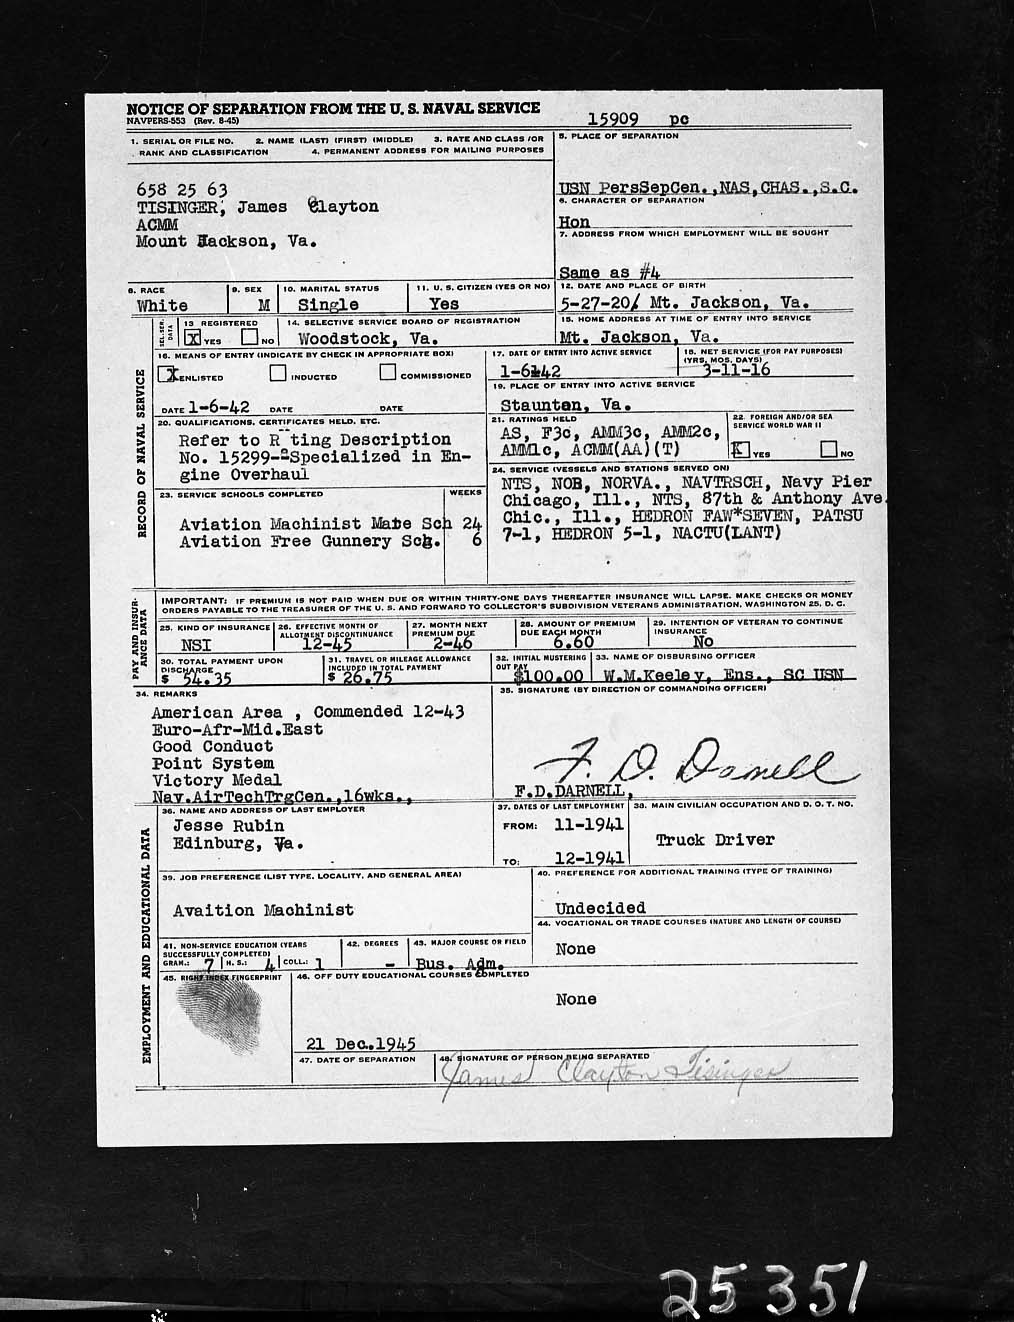 NOTICE OF SEPARATION FROM THE U. S. NAVAL SERVICE
NAVPERS-553 (Rev. 8-45)
15909 pc
1. SERIAL OR FILE NO. 2. NAME (LAST) (FIRST) (MIDDLE) 3. RATE AND CLASS /OR
RANK AND CLASSIFICATION 4. PERMANENT ADDRESS FOR MAILING PURPOSES
658 25 63
TISINGER, James Clayton
ACMM
Mount Jackson, Va.
5. PLACE OF SEPARATION
USN PersSepCen.,NAS,CHAS.,S.C.
6. CHARACTER OF SEPARATION
Hon
7. ADDRESS FROM WHICH EMPLOYMENT WILL BE SOUGHT
Same as #4
8. RACE
White
9. SEX
M
10. MARITAL STATUS
Single
11. U. S. CITIZEN (YES OR NO)
Yes
12. DATE AND PLACE OF BIRTH
5-27-20/ Mt. Jackson, Va.
RECORD OF NAVAL SERVICE
SEL. SER. DATA
13 REGISTERED
X YES NO
14. SELECTIVE SERVICE BOARD OF REGISTRATION
Woodstock, Va.
15. HOME ADDRESS AT TIME OF ENTRY INTO SERVICE
Mt. Jackson, Va.
16. MEANS OF ENTRY (INDICATE BY CHECK IN APPROPRIATE BOX)
X ENLISTED INDUCTED COMMISSIONED
DATE 1-6-42 DATE DATE
17. DATE OF ENTRY INTO ACTIVE SERVICE
1-6-42
18. NET SERVICE (FOR PAY PURPOSES)
(YRS. MOS. DAYS)
3-11-16
19. PLACE OF ENTRY INTO ACTIVE SERVICE
Staunton, Va.
20. QUALIFICATIONS, CERTIFICATES HELD, ETC.
Refer to R ting Description
No. 15299-Specialized in En-
gine Overhaul
21. RATINGS HELD
AS, F3c, AMM3c, AMM2c,
AMM1c, ACMM(AA)(T)
22. FOREIGN AND/OR SEA
SERVICE WORLD WAR II
X YES NO
23. SERVICE SCHOOLS COMPLETED WEEKS
Aviation Machinist Mate Sch 24
Aviation Free Gunnery Sch. 6
24. SERVICE (VESSELS AND STATIONS SERVED ON)
NTS, NOB, NORVA., NAVTRSCH, Navy Pier
Chicago, Ill., NTS, 87th & Anthony Ave.
Chic., Ill., HEDRON FAW*SEVEN, PATSU
7-1, HEDRON 5-1, NACTU(LANT)
PAY AND INSUR-
ANCE DATA
IMPORTANT: IF PREMIUM IS NOT PAID WHEN DUE OR WITHIN THIRTY-ONE DAYS THEREAFTER INSURANCE WILL LAPSE. MAKE CHECKS OR MONEY
ORDERS PAYABLE TO THE TREASURER OF THE U. S. AND FORWARD TO COLLECTOR'S SUBDIVISION VETERANS ADMINISTRATION, WASHINGTON 25, D. C.
25. KIND OF INSURANCE
NSI
26. EFFECTIVE MONTH OF
ALLOTMENT DISCONTINUANCE
12-45
27. MONTH NEXT
PREMIUM DUE
2-46
28. AMOUNT OF PREMIUM
DUE EACH MONTH
6.60
29. INTENTION OF VETERAN TO CONTINUE
INSURANCE
No
30. TOTAL PAYMENT UPON
DISCHARGE
$ 54.35
31. TRAVEL OR MILEAGE ALLOWANCE
INCLUDED IN TOTAL PAYMENT
$ 26.75
32. INITIAL MUSTERING
OUT PAY
$100.00
33. NAME OF DISBURSING OFFICER
W.M.Keeley, Ens., SC USN
34. REMARKS
American Area , Commended 12-43
Euro-Afr-Mid.East
Good Conduct
Point System
Victory Medal
Nav.AirTechTrgCen.,16wks.,
35. SIGNATURE (BY DIRECTION OF COMMANDING OFFICER)
F. D. Darnell
F.D.DARNELL,
EMPLOYMENT AND EDUCATIONAL DATA
36. NAME AND ADDRESS OF LAST EMPLOYER
Jesse Rubin
Edinburg, Va.
37. DATES OF LAST EMPLOYMENT
FROM: 11-1941
TO: 12-1941
38. MAIN CIVILIAN OCCUPATION AND D. O. T. NO.
Truck Driver
39. JOB PREFERENCE (LIST TYPE, LOCALITY, AND GENERAL AREA)
Avaition Machinist
40. PREFERENCE FOR ADDITIONAL TRAINING (TYPE OF TRAINING)
Undecided
41. NON-SERVICE EDUCATION (YEARS
SUCCESSFULLY COMPLETED)
GRAM.: 7 H. S.: 4 COLL.: 1
42. DEGREES
-
43. MAJOR COURSE OR FIELD
Bus. Adm.
44. VOCATIONAL OR TRADE COURSES (NATURE AND LENGTH OF COURSE)
None
45. RIGHT INDEX FINGERPRINT
46. OFF DUTY EDUCATIONAL COURSES COMPLETED
None
21 Dec.1945
47. DATE OF SEPARATION
48. SIGNATURE OF PERSON BEING SEPARATED
James Clayton Tisinger
25351